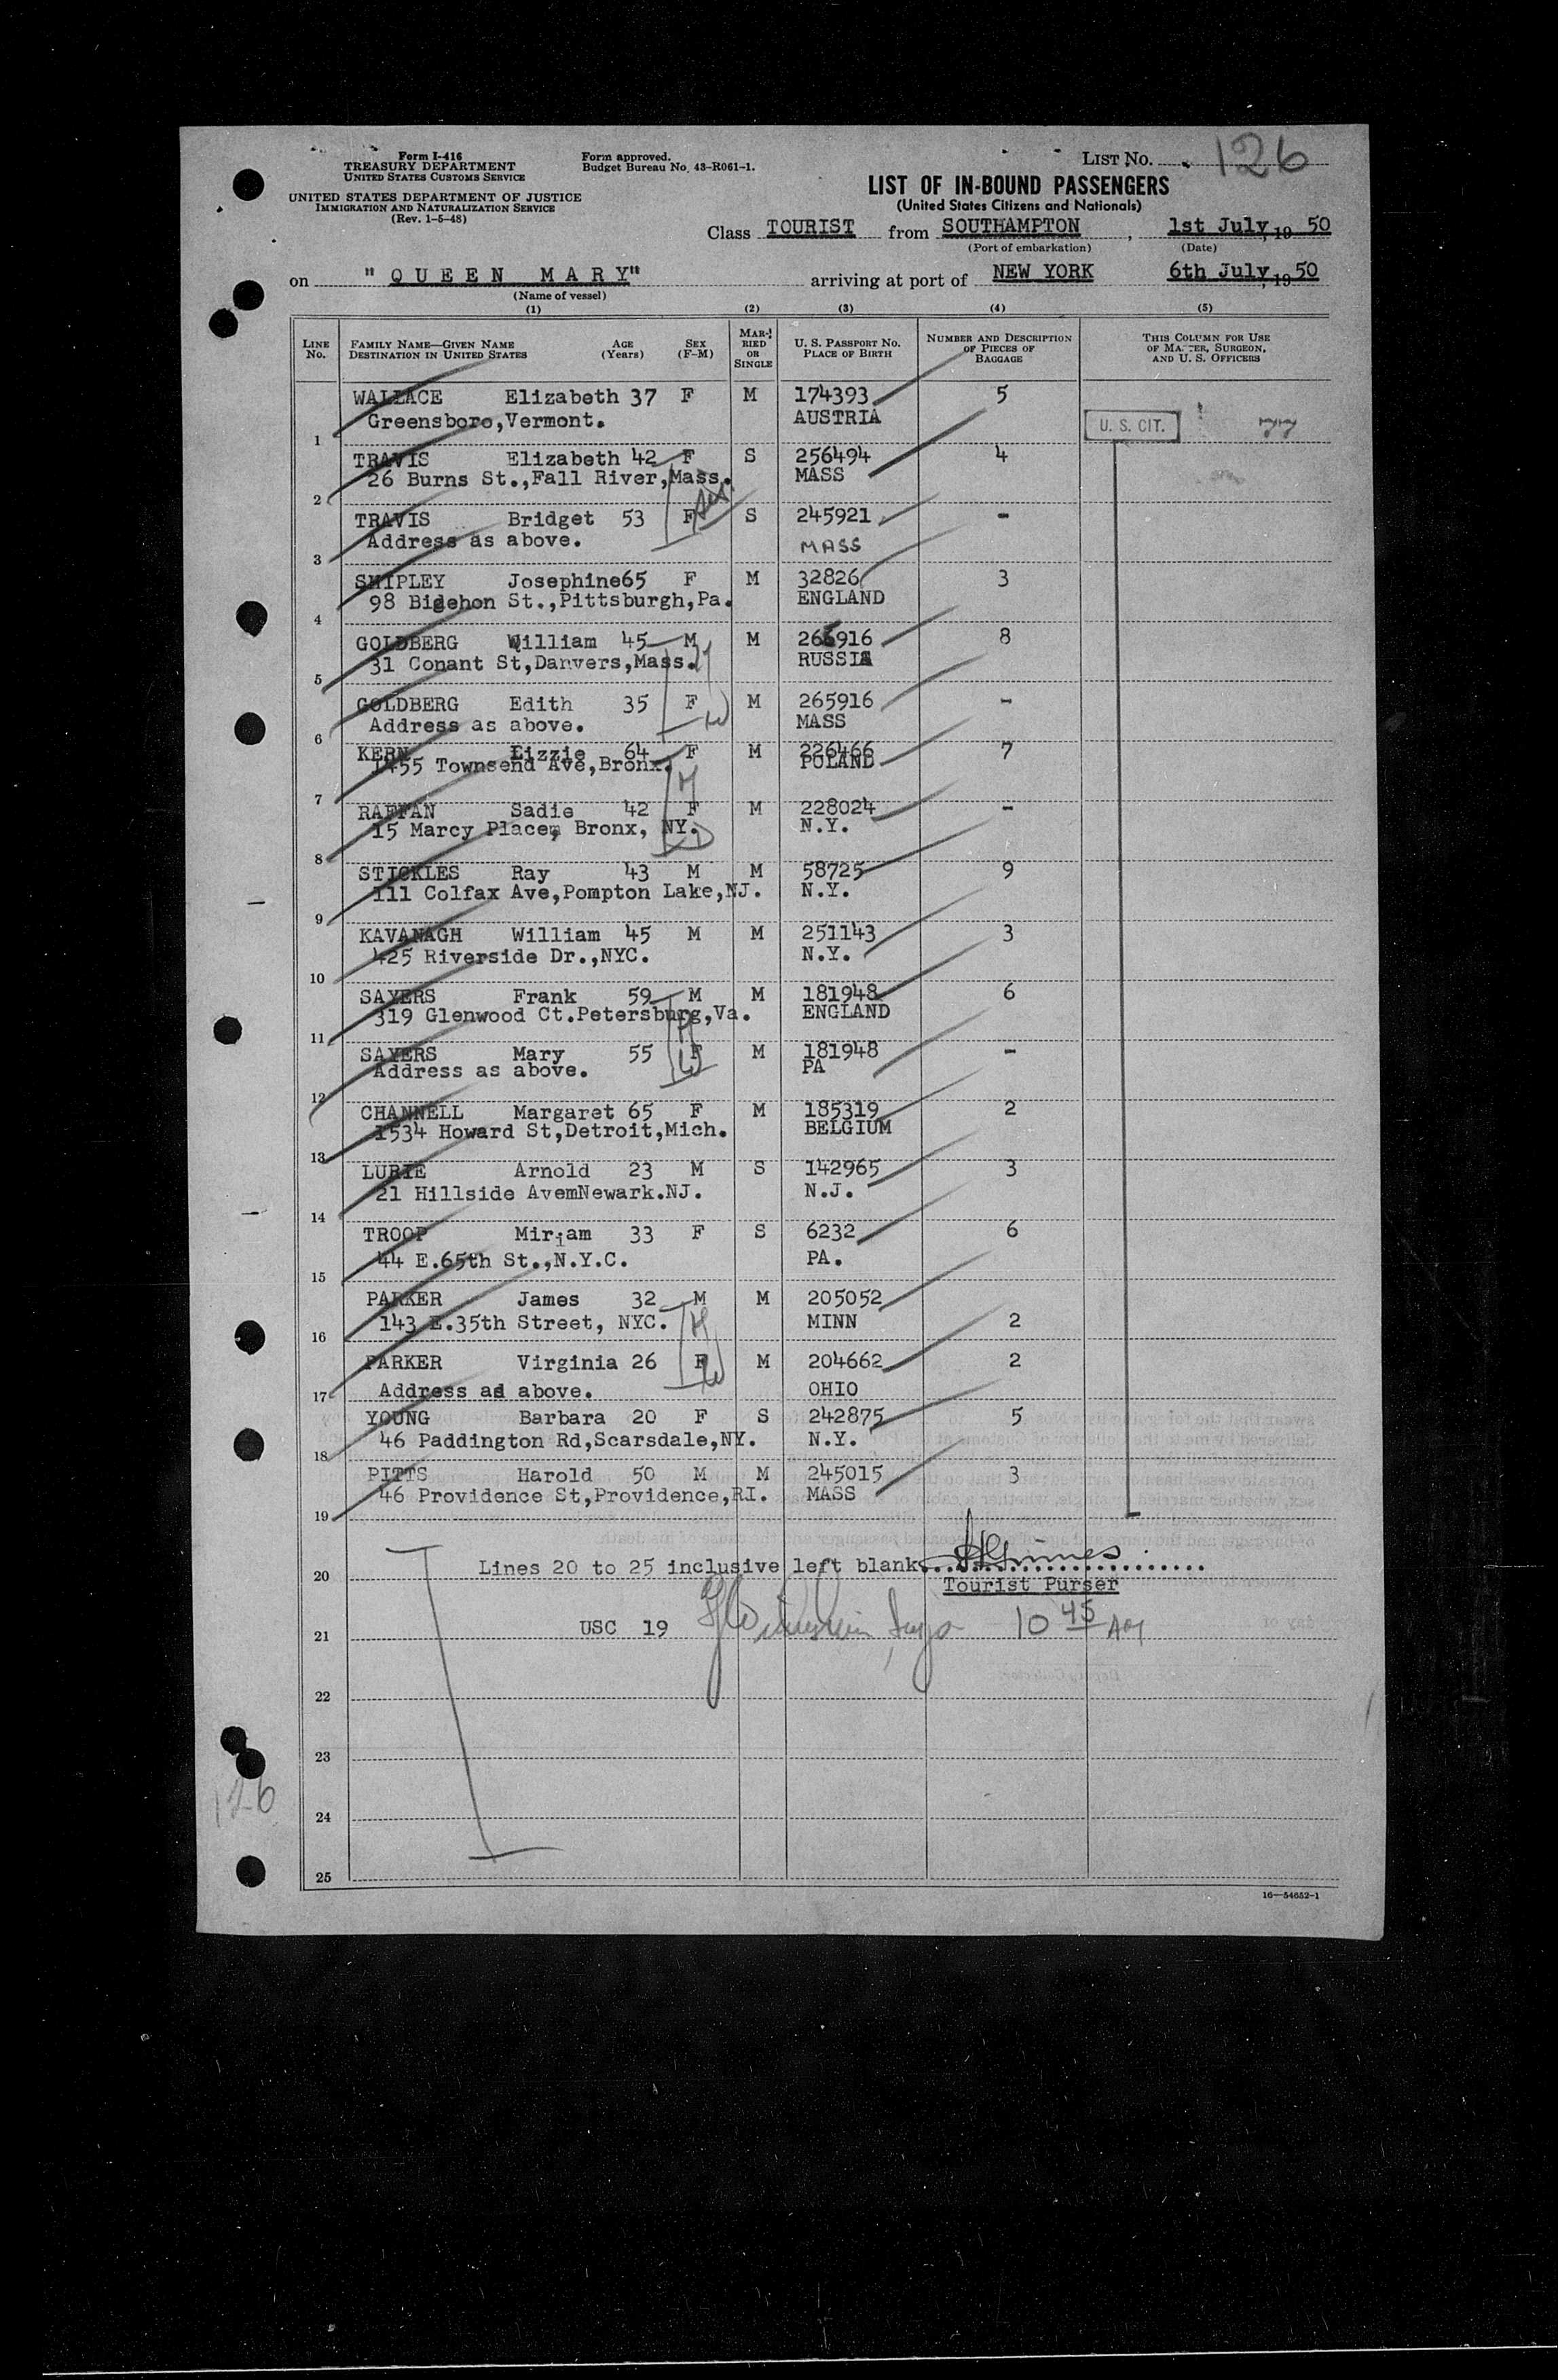 Form I-416
TREASURY DEPARTMENT
UNITED STATES CUSTOMS SERVICE
UNITED STATES DEPARTMENT OF JUSTICE
IMMIGRATION AND NATURALIZATION SERVICE
(Rev. 1-5-48)
Form approved.
Budget Bureau No. 43-R061-1.
LIST NO. 126
LIST OF IN-BOUND PASSENGERS
(United States Citizens and Nationals)
Class TOURIST from SOUTHAMPTON, 1st July, 19 50
(Port of embarkation) (Date)
on "QUEEN MARY" arriving at port of NEW YORK 6th July, 19 50
(Name of vessel)
(1) (2) (3) (4) (5)
LINE NO. FAMILY NAME—GIVEN NAME DESTINATION IN UNITED STATES AGE (Years) SEX (F-M) MARRIED OR SINGLE U. S. PASSPORT NO. PLACE OF BIRTH NUMBER AND DESCRIPTION OF PIECES OF BAGGAGE THIS COLUMN FOR USE OF MASTER, SURGEON, AND U. S. OFFICERS
WALLACE Elizabeth 37 F M 174393 5
1 Greensboro,Vermont. AUSTRIA U. S. CIT.
TRAVIS Elizabeth 42 F S 256494 4
2 26 Burns St.,Fall River,Mass. MASS
TRAVIS Bridget 53 F S 245921 -
3 Address as above. MASS
SHIPLEY Josephine65 F M 32826 3
4 98 Bigehon St.,Pittsburgh,Pa. ENGLAND
GOLDBERG William 45 M M 265916 8
5 31 Conant St,Danvers,Mass. RUSSIA
GOLDBERG Edith 35 F M 265916 -
6 Address as above. MASS
KERN Lizzie 64 F M 226466 7
7 1455 Townsend Ave,Bronx. POLAND
RAFFAN Sadie 42 F M 228024 -
8 15 Marcy Place, Bronx, NY. N.Y.
STICKLES Ray 43 M M 58725 9
9 111 Colfax Ave,Pompton Lake,NJ. N.Y.
KAVANAGH William 45 M M 251143 3
10 425 Riverside Dr.,NYC. N.Y.
SAYERS Frank 59 M M 181948 6
11 319 Glenwood Ct.Petersburg,Va. ENGLAND
SAYERS Mary 55 F M 181948 -
12 Address as above. PA
CHANNELL Margaret 65 F M 185319 2
13 1534 Howard St,Detroit,Mich. BELGIUM
LURIE Arnold 23 M S 142965 3
14 21 Hillside AvemNewark.NJ. N.J.
TROOP Miriam 33 F S 6232 6
15 44 E.65th St.,N.Y.C. PA.
PARKER James 32 M M 205052
16 143 E.35th Street, NYC. MINN 2
PARKER Virginia 26 F M 204662 2
17 Address as above. OHIO
YOUNG Barbara 20 F S 242875 5
18 46 Paddington Rd,Scarsdale,NY. N.Y.
PITTS Harold 50 M M 245015 3
19 46 Providence St,Providence,RI. MASS
20 Lines 20 to 25 inclusive left blank
Tourist Purser
21 USC 19 10 45 AM
22
23
126
24
25
16—54652-1